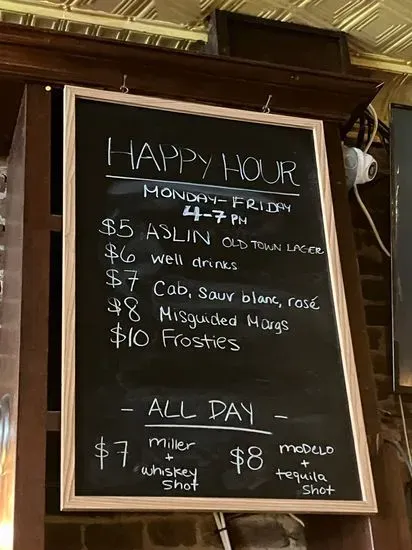 HAPPY HOUR
MONDAY-FRIDAY
4-7 PM
$5 ASLIN OLD TOWN LAGER
$6 well drinks
$7 Cab, Sauv blanc, rosé
$8 Misguided Margs
$10 Frosties
- ALL DAY -
$7 miller + whiskey shot
$8 MODELO + tequila shot